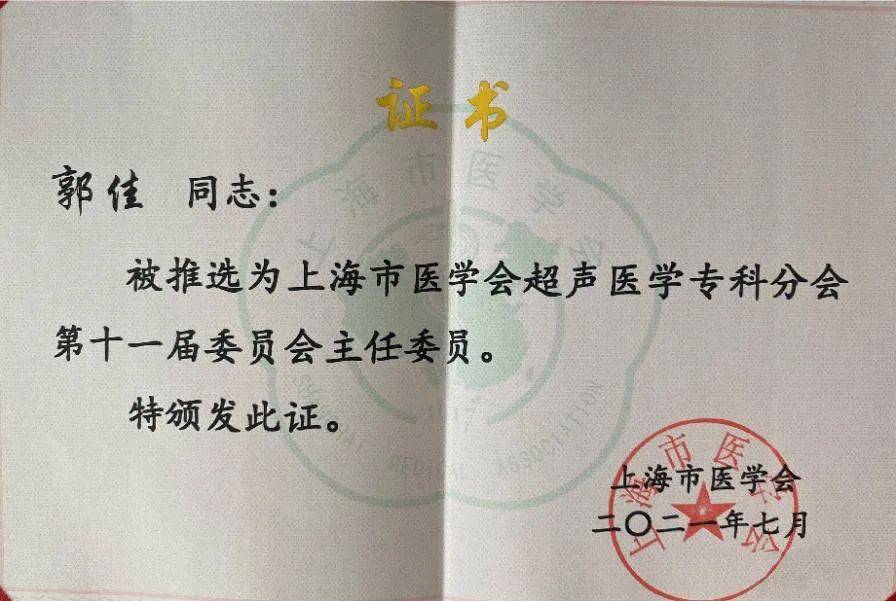 证书
郭佳 同志：
被推选为上海市医学会超声医学专科分会
第十一届委员会主任委员。
特颁发此证。
上海市医学会
二〇二一年七月
上海市医学会
上海市医学会